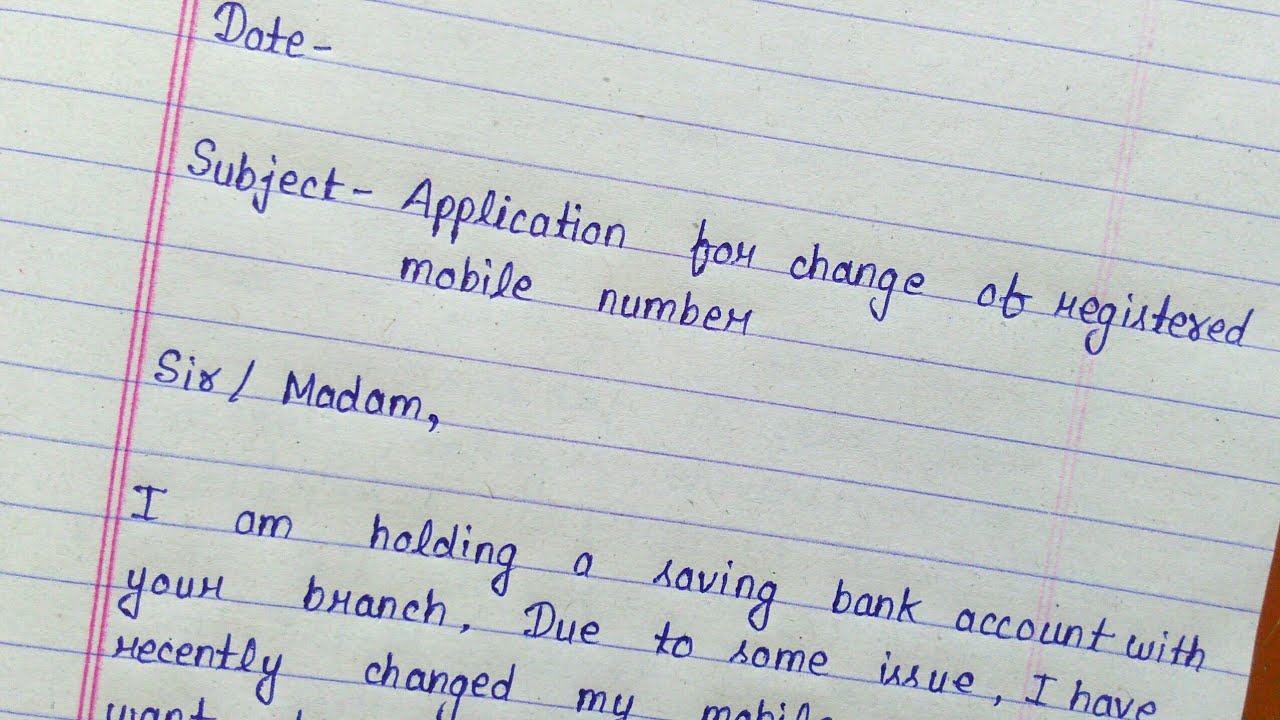 Date-
Subject- Application for change of registered
mobile number
Sir / Madam,
I am holding a saving bank account with
your branch. Due to some issue, I have
recently changed my mobile
want